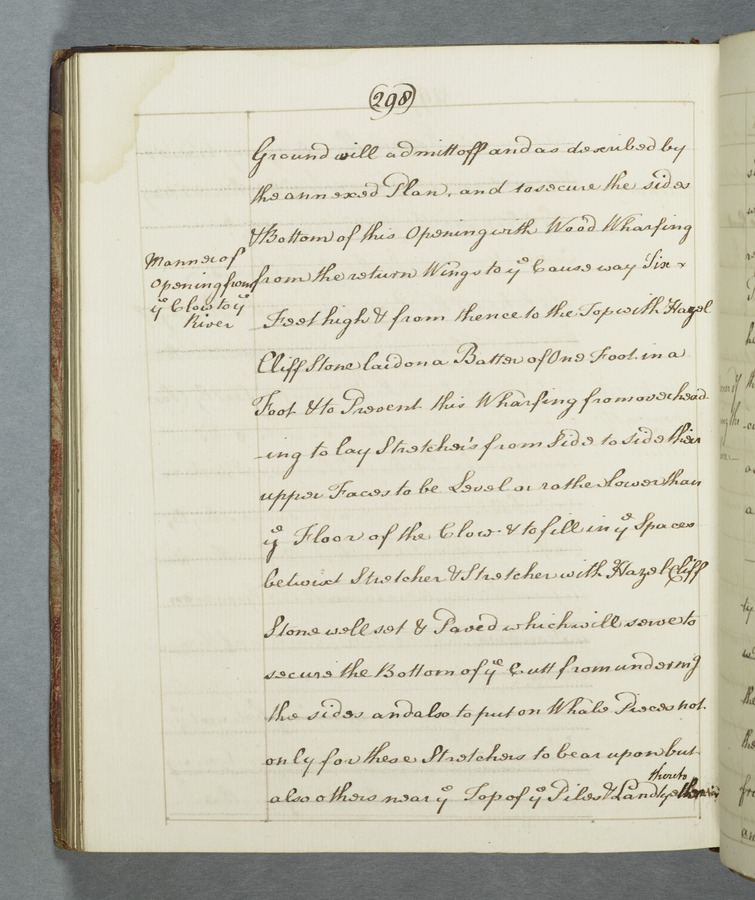 298
Ground will admitt off and as described by
the annexed Plan, and to secure the sides
& Bottom of this Opening with Wood Wharfing
Manner of
Opening from
yͤ Clow to yͤ
River
from the return Wings to yͤ Causeway Six
Feet high & from thence to the Top with Hazel
Cliff Stone laid on a Batter of One Foot in a
Foot & to Prevent this Wharfing from overhead
-ing to lay Stretchers from Side to side their
upper Faces to be Level or rather lower than
yͤ Floor of the Clow & to fill in yͤ Spaces
betwixt Stretcher & Stretcher with Hazel Cliff
Stone well set & Paved which will serve to
secure the Bottom of yͤ Cutt from undermg
the sides and also to put on Whale Pieces not
only for these Stretchers to bear upon but
also others near yͤ Top of yͤ Piles & Landtye
thereto